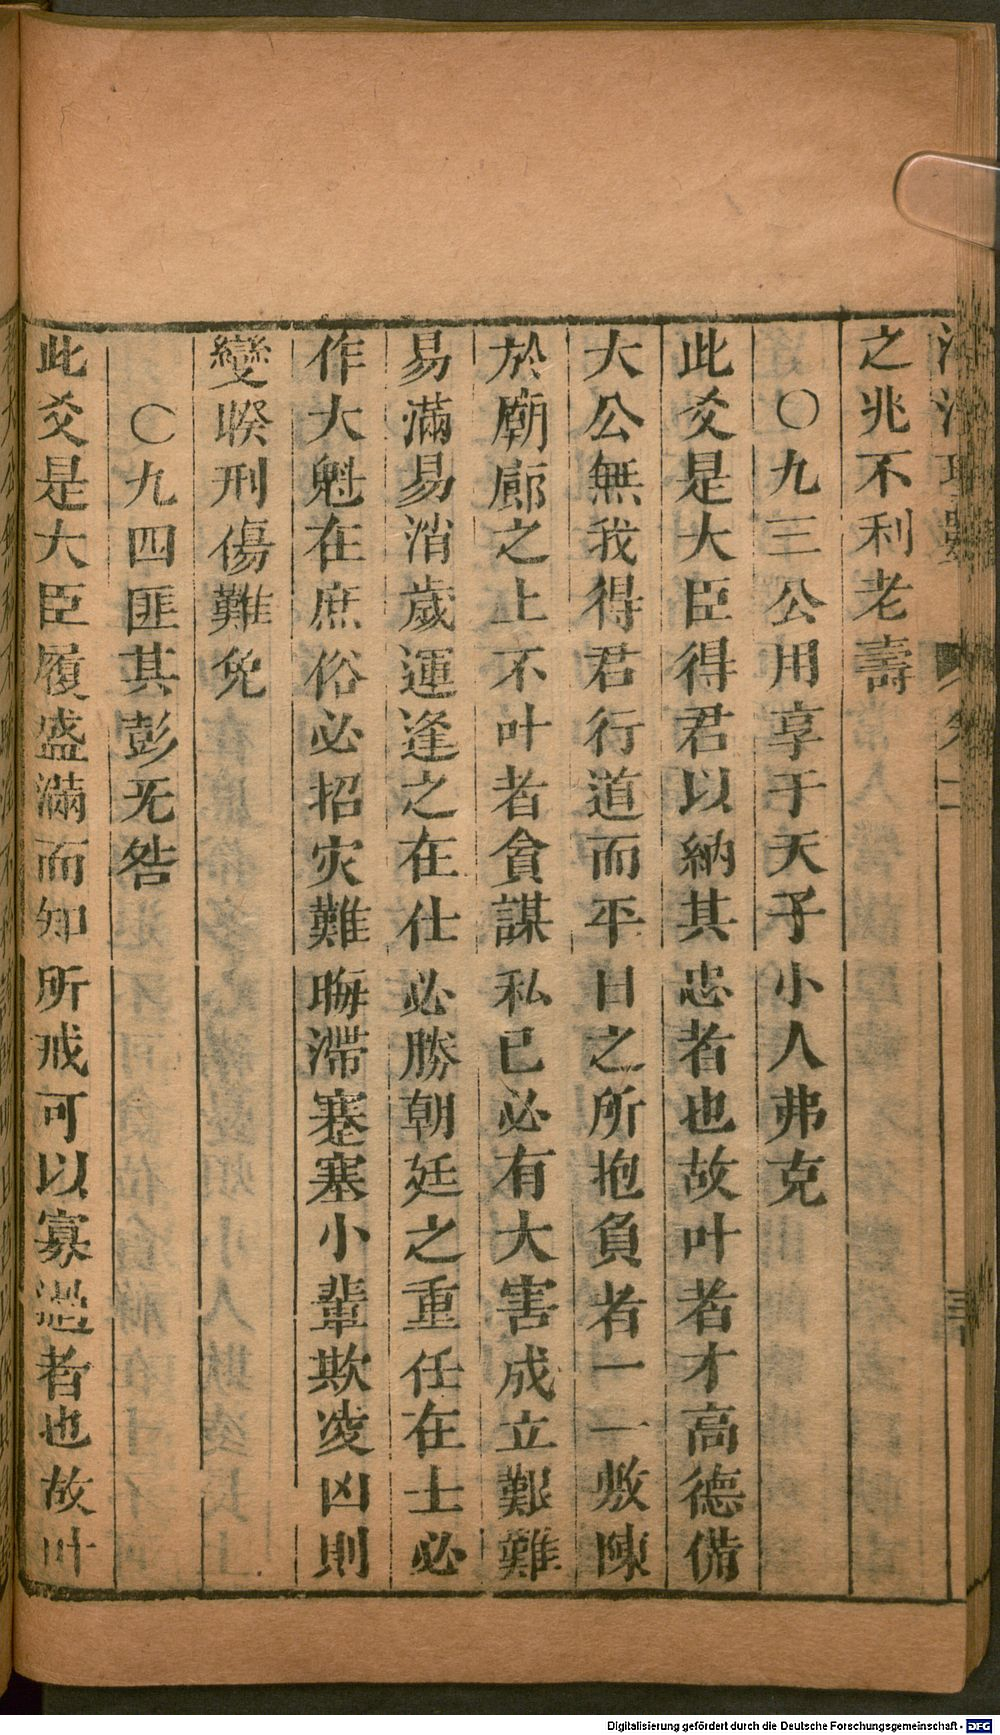 卷二
之兆不利老壽
○九三公用享于天子小人弗克
此爻是大臣得君以納其忠者也故叶者才高德備
大公無我得君行道而平日之所抱負者一一敷陳
於廟廊之上不叶者貪謀私己必有大害成立艱難
易滿易消歲運逢之在仕必勝朝廷之重任在士必
作大魁在庶俗必招灾難晦滯蹇塞小輩欺凌凶則
變睽刑傷難免
○九四匪其彭无咎
此爻是大臣履盛滿而知所戒可以寡過者也故叶
Digitalisierung gefördert durch die Deutsche Forschungsgemeinschaft - DFG